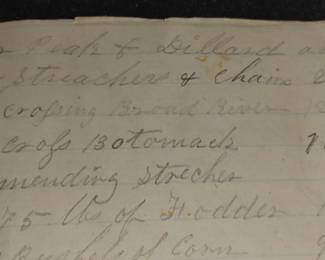 Peak & Dillard
Streachers & chain
crossing Broad River
cross Botomack
mending strecher
75 lbs of Fodder
Bushels of Corn